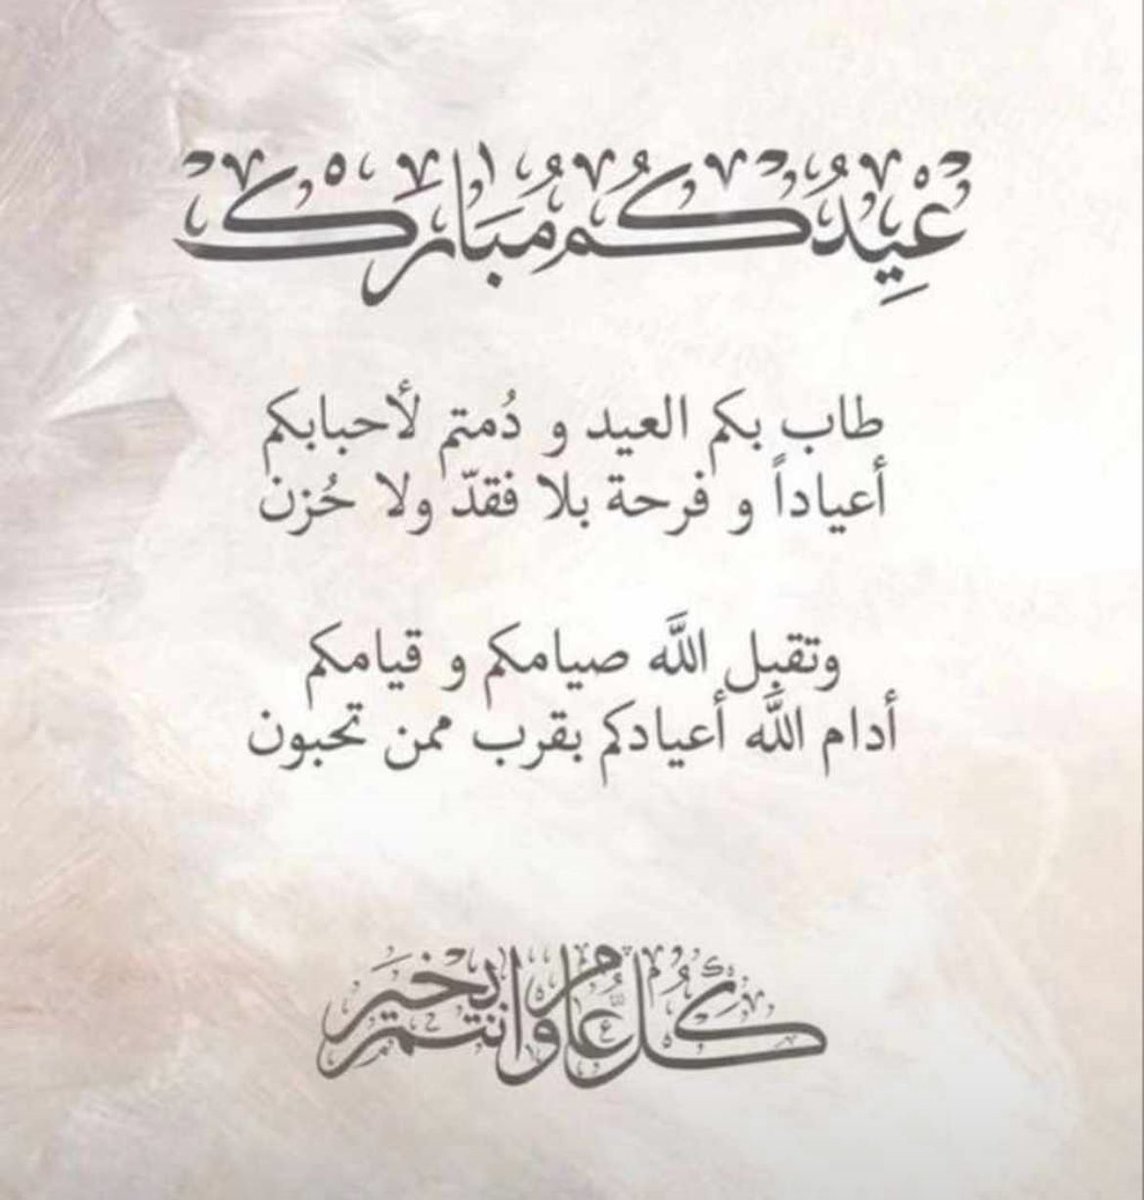 عِيْدُكُم مُبَارَك
طاب بكم العيد و دُمتم لأحبابكم
أعياداً و فرحة بلا فقدّ ولا حُزن
وتقبل اللَّه صيامكم و قيامكم
أدام اللَّه أعيادكم بقرب ممن تحبون
كُل عَام وانتم بخير